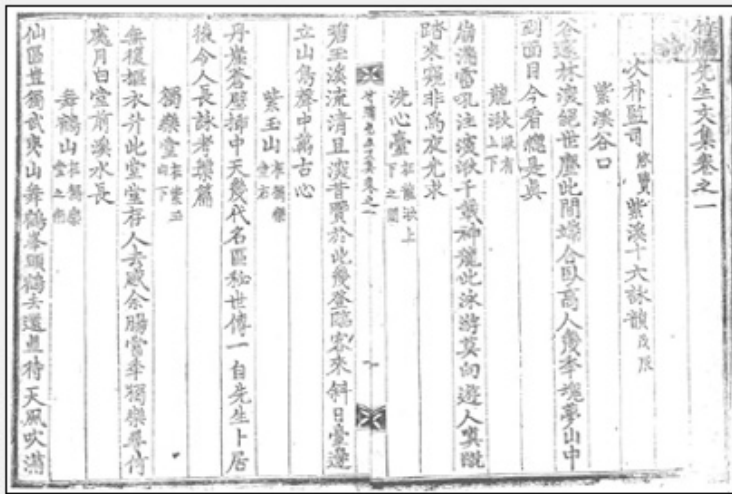 竹牖先生文集卷之一
次朴監司 啓賢 紫溪十六詠韻 戊辰
紫溪谷口
谷邃林深絕世塵此間端合臥高人幾秊魂夢山中
到面目今看總是眞
龍湫 湫有上下
崩灘雷吼注深湫千載神龍此泳游莫向遊人嗔戱
踏來窺非爲夜光求
洗心臺 在龍湫上下之間
竹牖先生文集卷之一 一
碧玉淡流清且深昔賢於此幾登臨客來斜日臺邊
立山鳥聲中萬古心
紫玉山 在獨樂堂右
丹崖蒼壁揷中天幾代名區秘世傳一自先生卜居
後今人長詠考槃篇
獨樂堂 在紫玉山下
無復摳衣升此堂堂存人去感余腸當秊獨樂尋何
處月白堂前溪水長
舞鶴山 在獨樂堂之
仙區豈獨武夷山舞鶴峯頭鶴去還直待天風吹滿